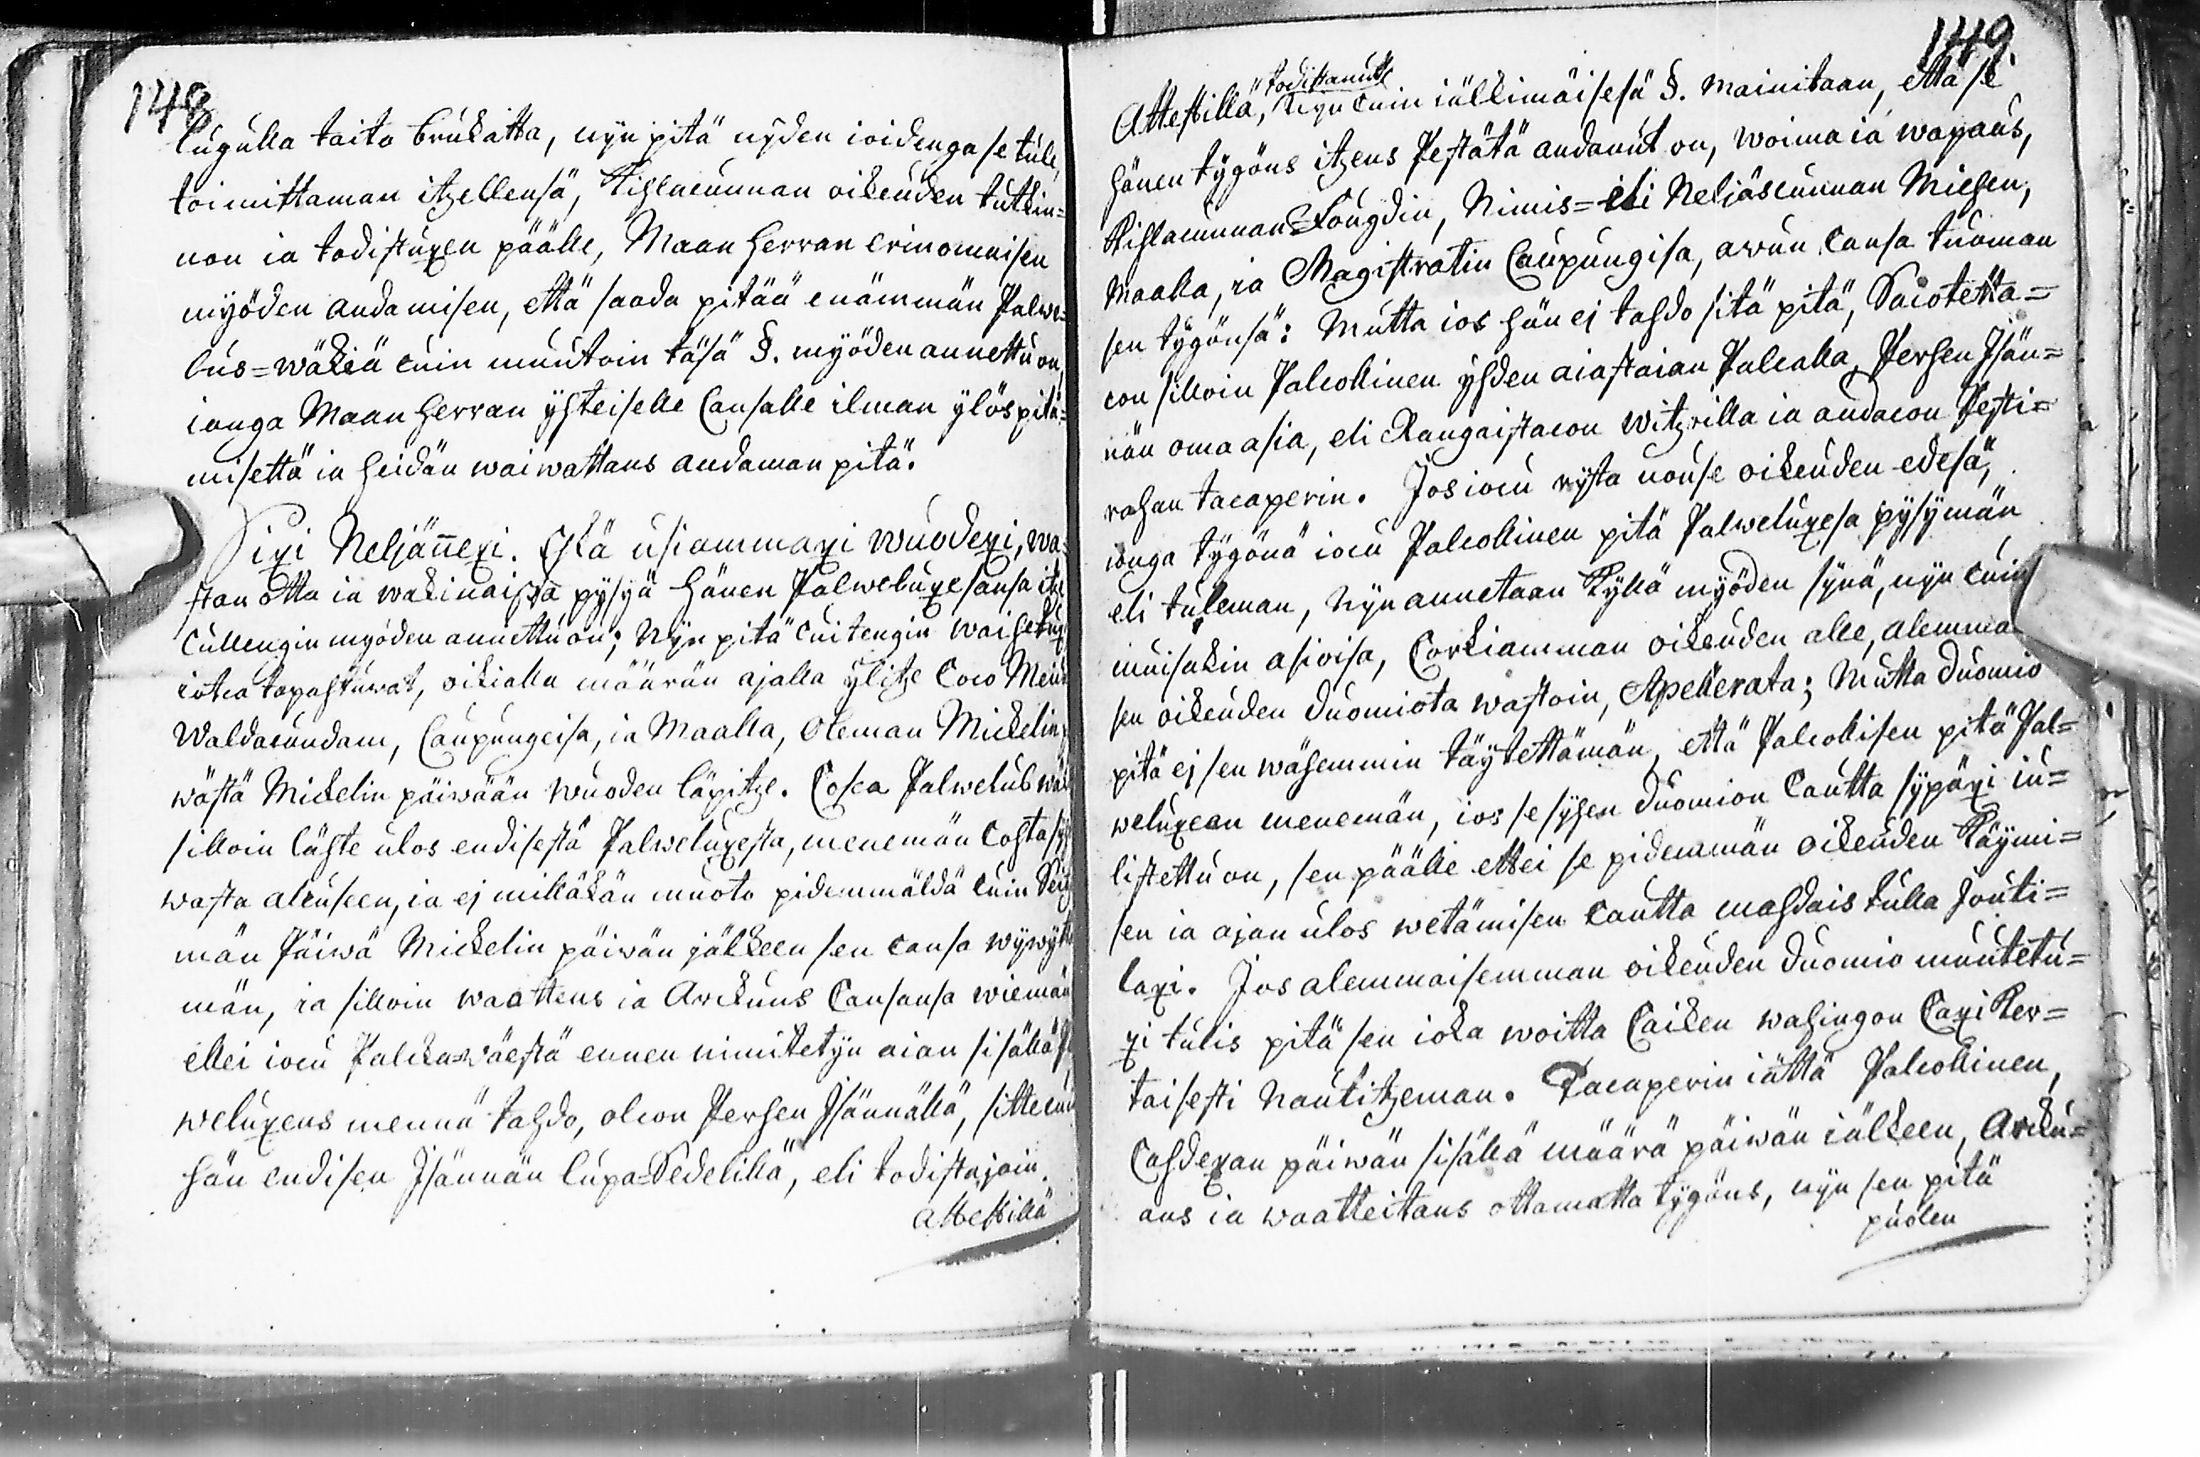 148
lugulla taita brukatta, nyn pitä nyden ioidenga se tule,
toimittaman itzellensä, Kihlacunnan oikeuden tutkin=
non ia todistuxen päälle, Maan Herran erinomaisen
myöden andamisen, että saada pitää enämmän Palwe=
lus=wäkiä cuin muutoin täsä §. myöden annettu on,
ionga Maan Herran yhteiselle Cansalle ilman ylöspitä=
misettä ia heidän waiwattans andaman pitä.
Sixi Neljännexi. Ehkä usiammaxi wuodexi, wa=
stan otta ia wakinaista pysyä hänen Palweluxesansa itze
cullengin myöden annettu on; Nyn pitä cuitengin waihetuxet
iotca tapahtuwat, oikialla määrän ajalla ylitze Coco Meidän
Waldacundam, Caupungeisa, ia Maalla, oleman Mickelin päi
wästä Mickelin päiwään wuoden läpitze. Cosca Palwelus wäki
silloin lähte ulos endisestä Palweluxesta, menemän cohta
wasta alcuseen, ia ej milläkän muoto pidemmäldä cuin Seitze
män Päiwä Mickelin päiwän jälkeen sen cansa wijwytte
män, ia silloin waattens ia Arckuns Cansansa wiemän
ellei iocu Palcka=wäestä ennen nimitetyn aian sisällä Pal
weluxens mennä tahdo, olcon Perhen Isännällä, sittecuin
hän endisen Isännän lupa=Sedelillä, eli todistajain
attestillä
149.
Attestillä, todistanut
nyn cuin iällimäisesä §. mainitaan, että se
hänen tygöns itzens Pestätä andanut on, woima ia wapaus,
Kihlacunnan Fougdin, Nimis= eli Neljäscunnan Miehen,
Maalla, ia Magistratin Caupungisa, awun cansa tuoman
sen tygönsä: Mutta ios hän ej tahdo sitä pitä, Sacotetta=
con silloin Palcollinen yhden aiastaian Palcalla, Perhen Isän=
nän oma asia, eli Rangaistacon witzoilla ia andacon Pesti=
rahan tacaperin. Jos iocu rijta nouse oikeuden edesä,
ionga tygönä iocu Palcollinen pitä Palweluxesa pysymän
eli tuleman, nyn annetaan Kyllä myöden synä, nyn cuin
muisakin asioisa, Corkiamman oikeuden alle, alemmai
sen oikeuden duomiota wastoin, Apellerata; Mutta duomio
pitä ej sen wähemmin täytettämän, että Palcollisen pitä Pal=
weluxeen menemän, ios se syhen duomion cautta sypäxi iu=
listettu on, sen päälle ettei se pidemmän oikeuden Käymi=
sen ia ajan ulos wetämisen cautta mahdais tulla Jouti=
laxi. Jos alemmaisemman oikeuden duomio muutetu=
xi tulis pitä sen ioka woitta Caiken wahingon Caxi Ker=
taisesti nautitzeman. Tacaperin iättä Palcollinen,
Cahdexan päiwän sisällä määrä päiwän iälkeen, Arcku=
ans ia waatteitans ottamatta tygöns, nyn sen pitä
puolen